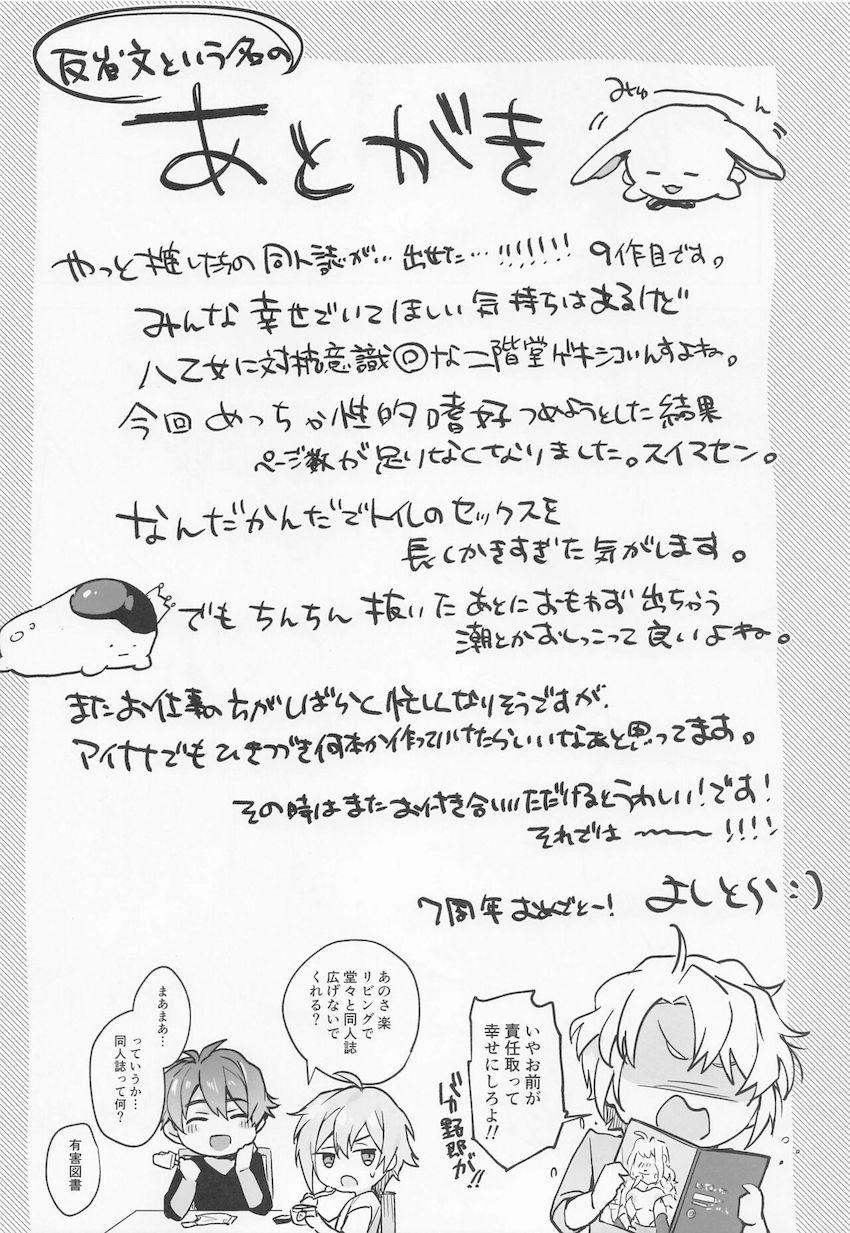 反省文という名の
あとがき
みちゅーーん
やっと推したちの同人誌が…出せた…!!!!!!! 9作目です。
みんな幸せでいてほしい気持ちはあるけど
八乙女に対抗意識◎な二階堂ゲキシコいんすよね。
今回めっちゃ性的嗜好つめようとした結果
ページ数が足りなくなりました。スイマセン。
なんだかんだでトイレのセックスを
長くかきすぎた気がします。
でもちんちん抜いたあとにおもわず出ちゃう
潮とかおしっこって良いよね。
またお仕事の方がしばらく忙しくなりそうですが、
アイナナでもひきつづき何本か作っていけたらいいなあと思ってます。
その時はまたお付き合いいただけるとうれしい!です!
それでは〜〜〜!!!!
7周年おめでとー! よしとら:)
いやお前が
責任取って
幸せにしろよ!!
バカ野郎が!!
あのさ楽
リビングで
堂々と同人誌
広げないで
くれる?
まあまあ…
っていうか…
同人誌って何?
有害図書